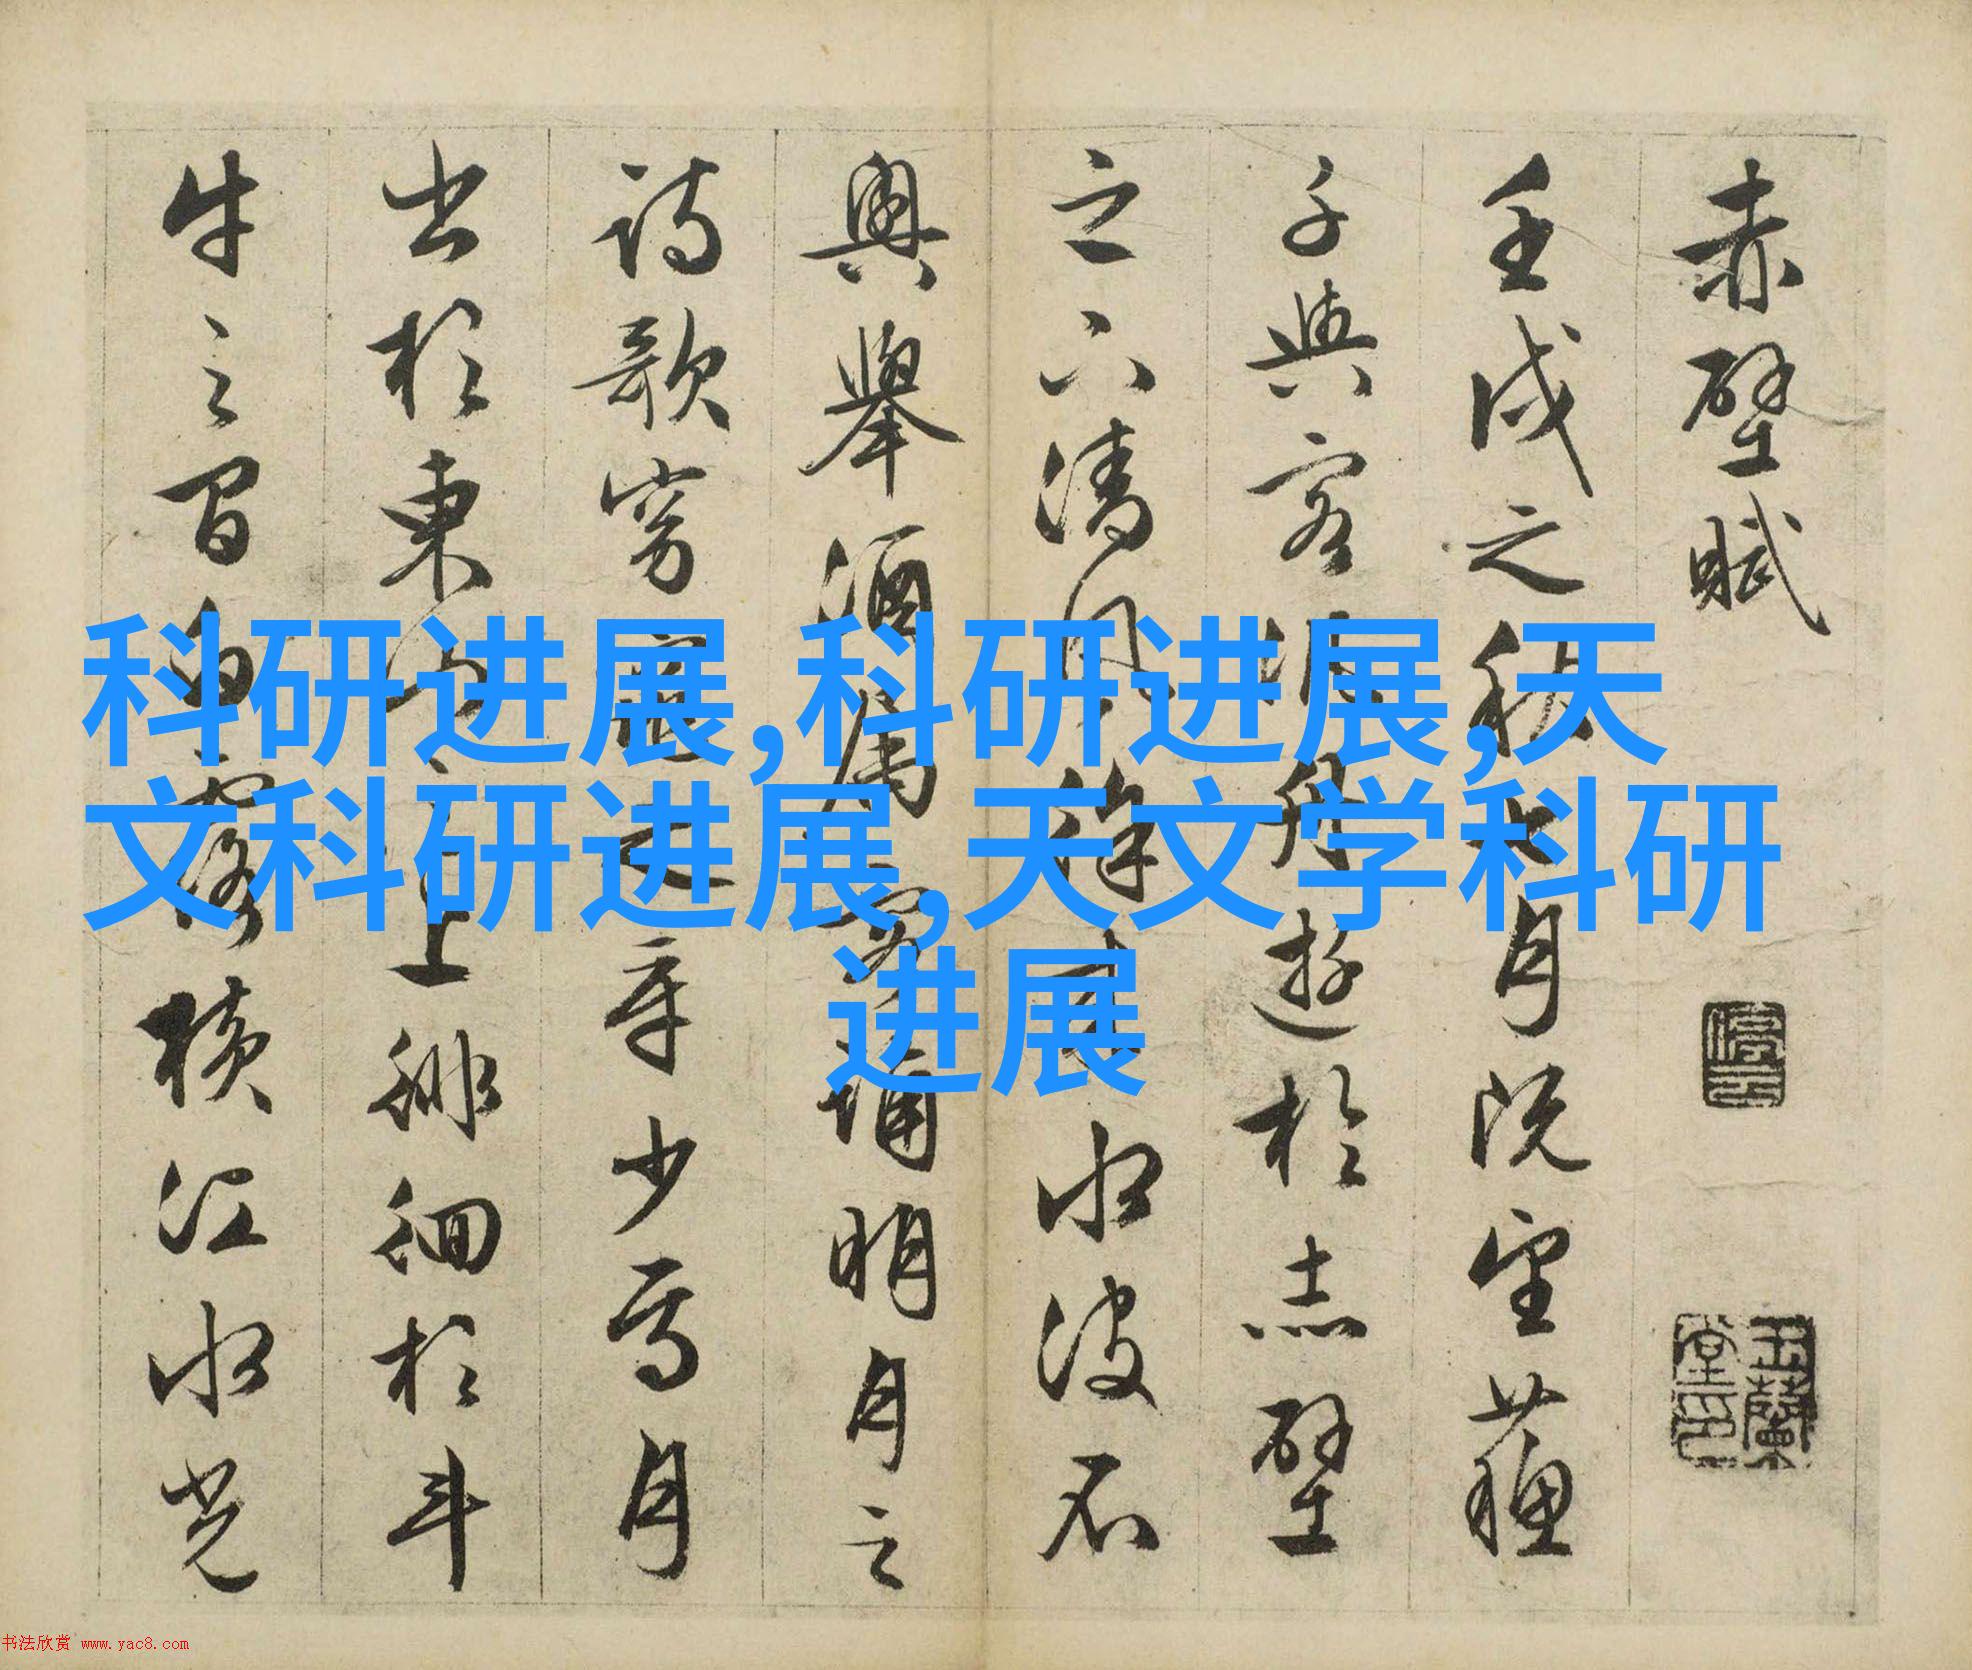 科研进展,科研进展,天
文科研进展,天文学科研
进展
赤壁賦
壬戌之秋七月既望蘇
子與客泛舟遊於赤壁
之下清風徐來水波不
興舉酒屬客誦明月之
詩歌窈窕之章少焉月
出於東山之上徘徊於斗
牛之間白露橫江水光
停雲
玉蘭堂印
书法欣赏 www.yac8.com